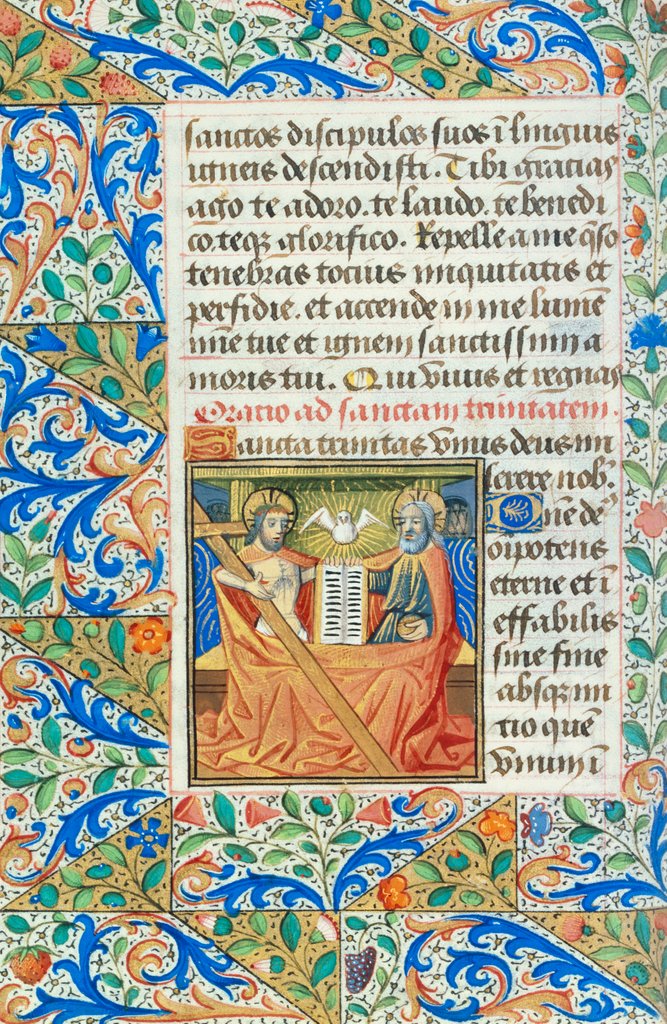 sanctos discipulos suos ī linguis
igneis descendisti. Tibi gracias
ago te adoro. te laudo. te benedi
co. teqȝ glorifico. Repelle a me q̄so
tenebras tocius iniquitatis et
perfidie. et accende in me lumē
mīe tue et ignem sanctissim a
moris tui. Qui vivis et regnas
Oratio ad sanctam trinitatem.
Sancta trinitas vnus deus mi
serere nob.
Dn̄e de᷒
oīpotens
eterne et ī
effabilis
sine fine
absqȝ ini
tio quē
vnum ī